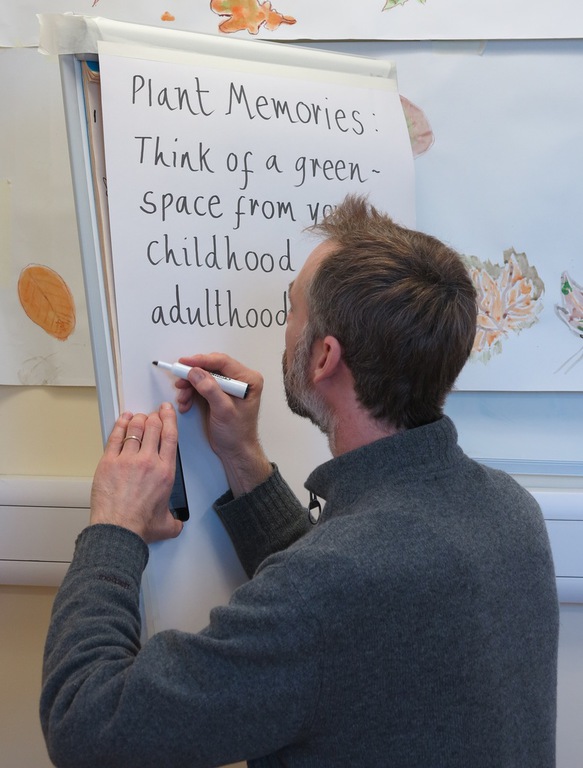 Plant Memories:
Think of a green-
space from
childhood
adulthood